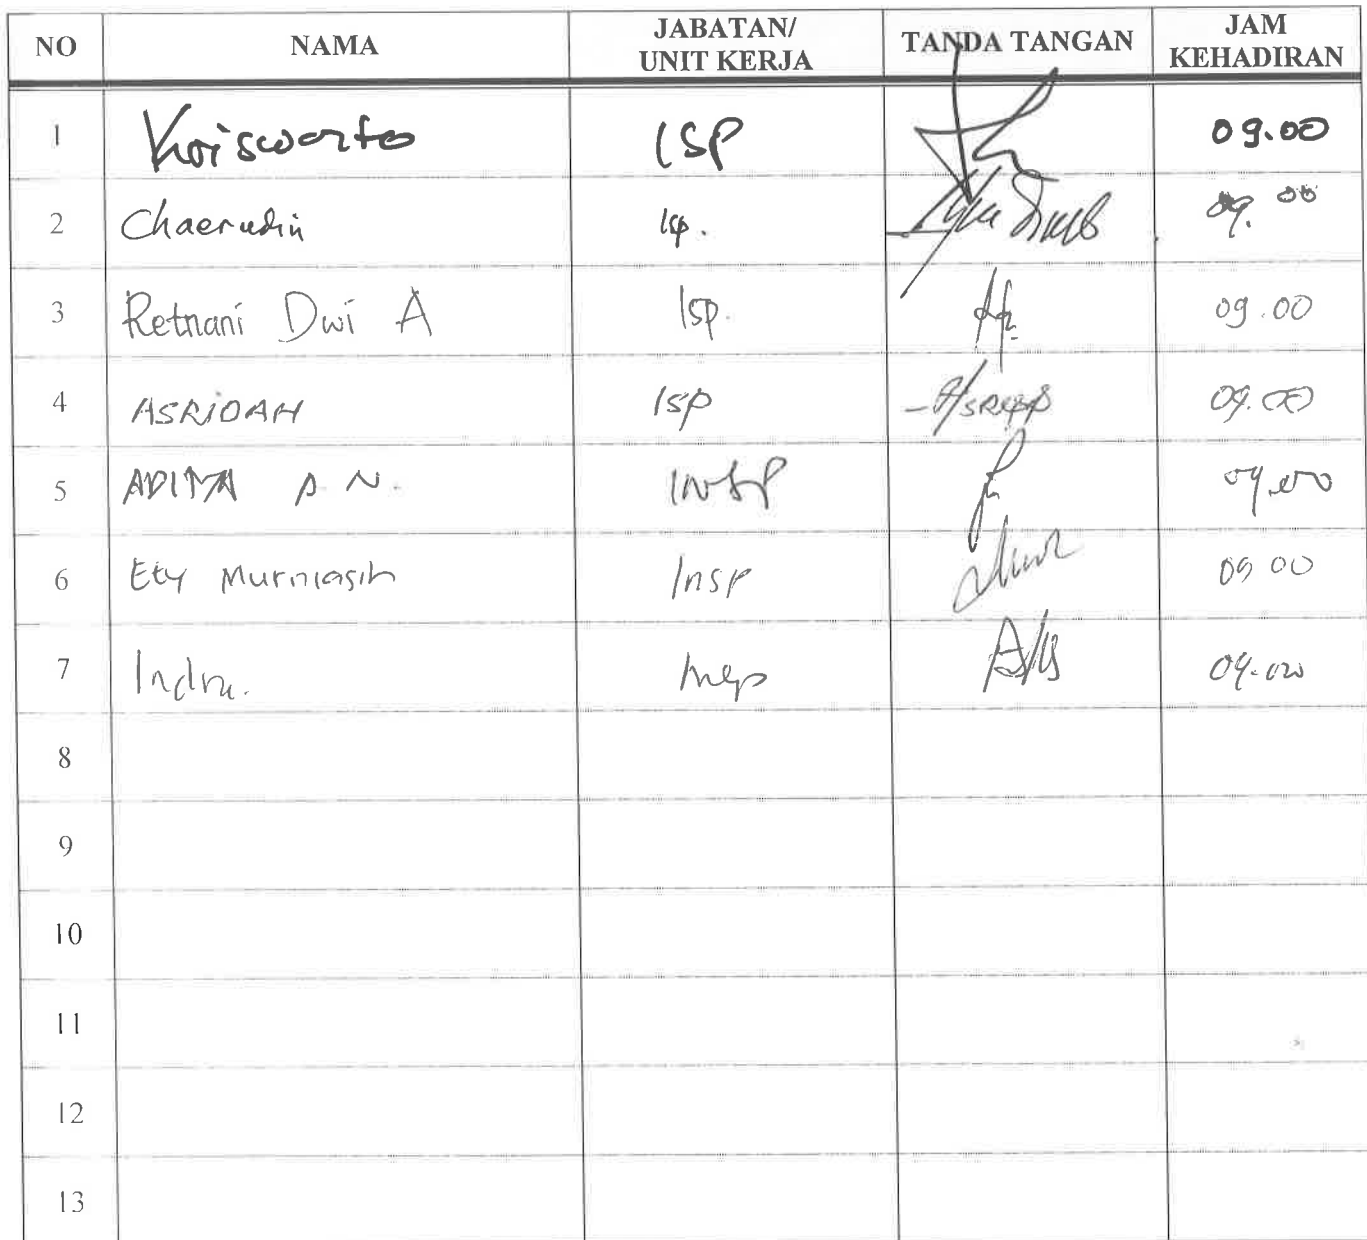 NO NAMA JABATAN/ UNIT KERJA TANDA TANGAN JAM KEHADIRAN
1 Kriswarto ISP 09.00
2 Chaerudin Isp. 09.00
3 Retnani Dwi A Isp. 09.00
4 ASRIDAH ISP 09.00
5 ADITYA A.N. INSP 09.00
6 Ety Murniasih Insp 09 00
7 Indra. Insp 09.00
8
9
10
11
12
13